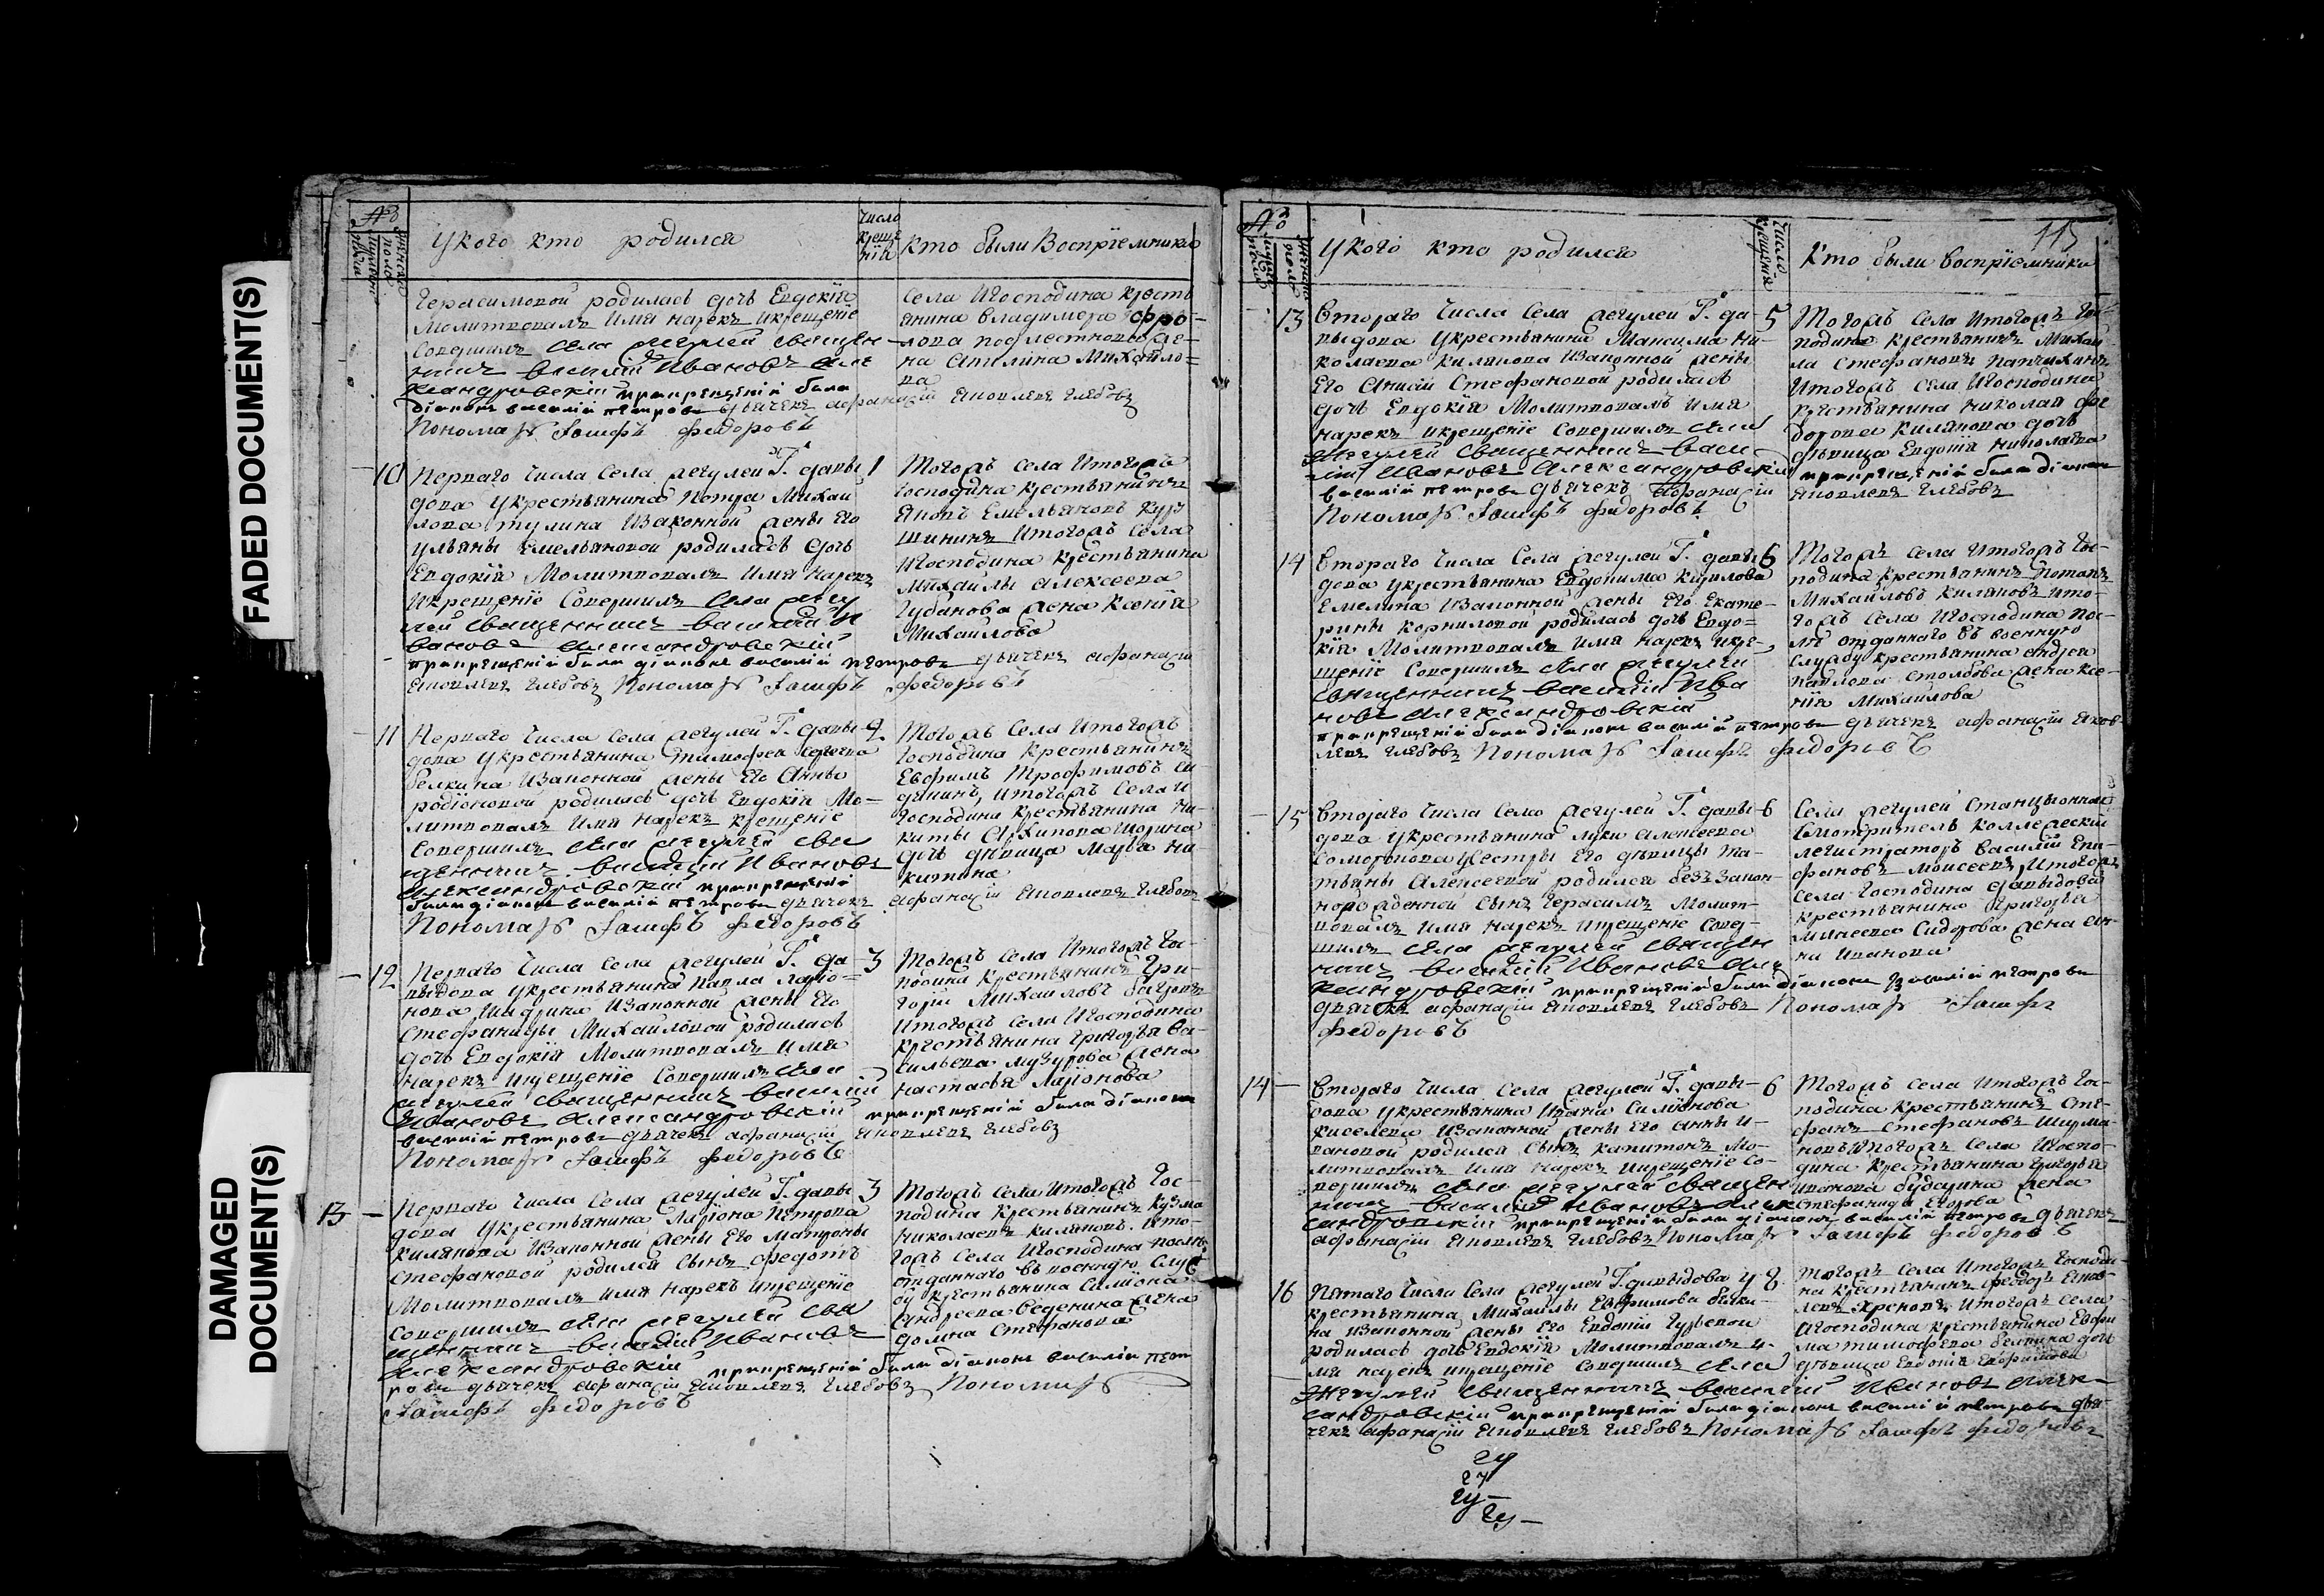 FADED DOCUMENT(S)
DAMAGED
DOCUMENT(S)
№
мужеска
пола
женска
У кого кто родился
число
креще
нія
Кто были Воспріемники
Герасимовой родилась дочь Евдокія
Молитвовалъ имя нарекъ и крещеніе
Совершилъ села Жегулей священ-
никъ Василій Ивановъ Але
ксандровскій при крещеніи были
діаконъ василій петровъ дьячекъ афанасіи Яковлевъ Глебовъ
Пономарь Іосифъ Федоровъ
села и Господина кресть
янина Владимера Фро-
лова
жена Михайло-
ва
10 Перваго числа села Жегулей Г. Давы 1
дова у крестьянина Петра Михаи
лова тулина и законной жены Его
ульяны Емельяновой родилась дочь
Евдокія Молитвовалъ имя нарекъ
и крещеніе Совершилъ села Жегу
лей священникъ василій И
вановъ Александровскій
при крещеніи были діаконъ василій петровъ дьячекъ афанасіи
Яковлевъ Глебовъ Пономарь Іосифъ Федоровъ
Тогожъ села и тогожъ
Господина крестьянинъ
Емельяновъ Кур
шининъ и тогожъ села
и Господина крестьянина
Михайлы Алексеева
Губанова жена Ксенія
Михайлова
11 Перваго числа села Жегулей Г. Давы 2
дова у крестьянина Тимофея Сергеева
Белкина и законной жены Его Анны
родіоновой родилась дочь Евдокія Мо-
литвовалъ имя нарекъ крещеніе
Совершилъ села Жегулей свя
щенникъ василій Ивановъ
Александровскій при крещеніи
были діаконъ василій петровъ дьячекъ афанасіи Яковлевъ Глебовъ
Пономарь Іосифъ Федоровъ
Тогожъ села и тогожъ
Господина крестьянинъ
Евфимъ Трофимовъ
и тогожъ села и
Господина крестьянина Ни-
киты Архипова
дочь девица Марфа Ни-
китина
12 Перваго числа села Жегулей Г. Да- 3
выдова у крестьянина Павла Ларіо-
нова и законной жены Его
Стефаниды Михайловой родилась
дочь Евдокія Молитвовалъ имя
нарекъ и крещеніе Совершилъ села
Жегулей священникъ василій
Ивановъ Александровскій при крещеніи были діаконъ
василій петровъ дьячекъ афанасіи Яковлевъ Глебовъ
Пономарь Іосифъ Федоровъ
Тогожъ села и тогожъ Гос-
подина крестьянинъ Гри-
горій Михайловъ
и тогожъ села и Господина
крестьянина Григорья Ва-
сильева Музурова жена
Настасья Ларіонова
13 Перваго числа села Жегулей Г. Давы 3
дова у крестьянина Ларіона Петрова
Килякова и законной жены Его Матроны
Стефановой родился сынъ Федотъ
Молитвовалъ имя нарекъ и крещеніе
Совершилъ села Жегулей свя
щенникъ василій Ивановъ
Александровскій при крещеніи были діаконъ василіи пет
ровъ дьячекъ афанасіи Яковлевъ Глебовъ Пономарь
Іосифъ Федоровъ
Тогожъ села и тогожъ Гос-
подина крестьянинъ Кузма
Николаевъ Киляковъ. и того-
жъ села и Господина послѣ
отданнаго въ военную служ
бу крестьянина Симіона
Андреева Веденина жена
Домна Стефанова
115
№
У кого кто родился
Число
крещенія
Кто были воспріемники
13 Втораго числа села Жегулей Г. Да- 5
выдова у крестьянина Максима Ни-
колаева Килякова и законной жены
Его Анисіи Стефановой родилась
дочь Евдокія Молитвовалъ имя
нарекъ и крещеніе Совершилъ села
Жегулей священникъ васи-
лій Ивановъ Александровскій
василій петровъ дьячекъ Афанасіи
Пономарь Іосифъ Федоровъ
Тогожъ села и тогожъ Гос-
подина крестьянинъ Михай
ла Стефановъ
и тогожъ села и Господина
крестьянина Николая Фе
дорова Килякова дочь
девица Евдокія Николаева
при крещеніи были діаконъ
Яковлевъ Глебовъ
14 Втораго числа села Жегулей Г. Давы 6
дова у крестьянина Евдокима Кирилова
Емелина и законной жены Его Екате-
рины Корниловой родилась дочь Евдо-
кія Молитвовалъ имя нарекъ и кре-
щеніе Совершилъ села Жегулей
священникъ василій Ива
новъ Александровскій
при крещеніи были діаконъ василій петровъ дьячекъ афанасіи Яков-
левъ Глебовъ Пономарь Іосифъ Федоровъ
Тогожъ села и тогожъ Гос-
подина крестьянинъ Потапъ
Михайловъ Киляковъ и то-
гожъ села и Господина пос-
лѣ отданнаго въ военную
службу крестьянина Андрея
Павлова Столбова жена Ксе-
нія Михайлова
15 Втораго числа села Жегулей Г. Давы- 6
дова у крестьянина луки Алексеева
у сестры Его девицы Та-
тьяны Алексеевой родился без закон-
норожденной сынъ Герасимъ Молит-
вовалъ имя нарекъ и крещеніе Совер-
шилъ села Жегулей священ
никъ василій Ивановъ Але
ксандровскій при крещеніи были діаконъ василій петровъ
дьячекъ афанасіи Яковлевъ Глебовъ Пономарь Іосифъ
Федоровъ
Села Жегулей Станціонный
Смотритель Коллежскій
регистраторъ Василій Епи-
фановъ Моисеевъ, и тогожъ
села Господина Давыдова
крестьянина Григорья
Минеева Сидорова жена Ан-
на Иванова
14 Втораго числа села Жегулей Г. Давы- 6
дова у крестьянина Ивана Симіонова
Киселева и законной жены Его Анны И-
вановой родился сынъ Капитонъ Мо-
литвовалъ имя нарекъ и крещеніе Со-
вершилъ села Жегулей священ
никъ василій Ивановъ Алек
сандровскій при крещеніи были діаконъ василій петровъ дьячекъ
афанасіи Яковлевъ Глебовъ Пономарь Іосифъ Федоровъ
Тогожъ села и тогожъ Гос-
подина крестьянинъ Сте-
фанъ Стефановъ Шурма-
новъ и тогожъ села и Госпо-
дина крестьянина Григорья
Иванова жена
Стефанида Егорова
16 Пятаго числа села Жегулей Г. Давыдова у 8
крестьянина Михайлы Евфимова Белки-
на и законной жены Его Евдокіи Гурьевой
родилась дочь Евдокія Молитвовалъ и-
мя нарекъ и крещеніе Совершилъ села
Жегулей священникъ василій Ивановъ Алек-
сандровскій при крещеніи были діаконъ василій петровъ дья
чекъ афанасіи Яковлевъ Глебовъ Пономарь Іосифъ Федоровъ
Тогожъ села и тогожъ Господи
на крестьянинъ Федоръ Яков-
левъ Хреновъ, и тогожъ села
и Господина крестьянина Евфи
ма Тимофеева Белкина дочь
девица Евдокія Евфимова